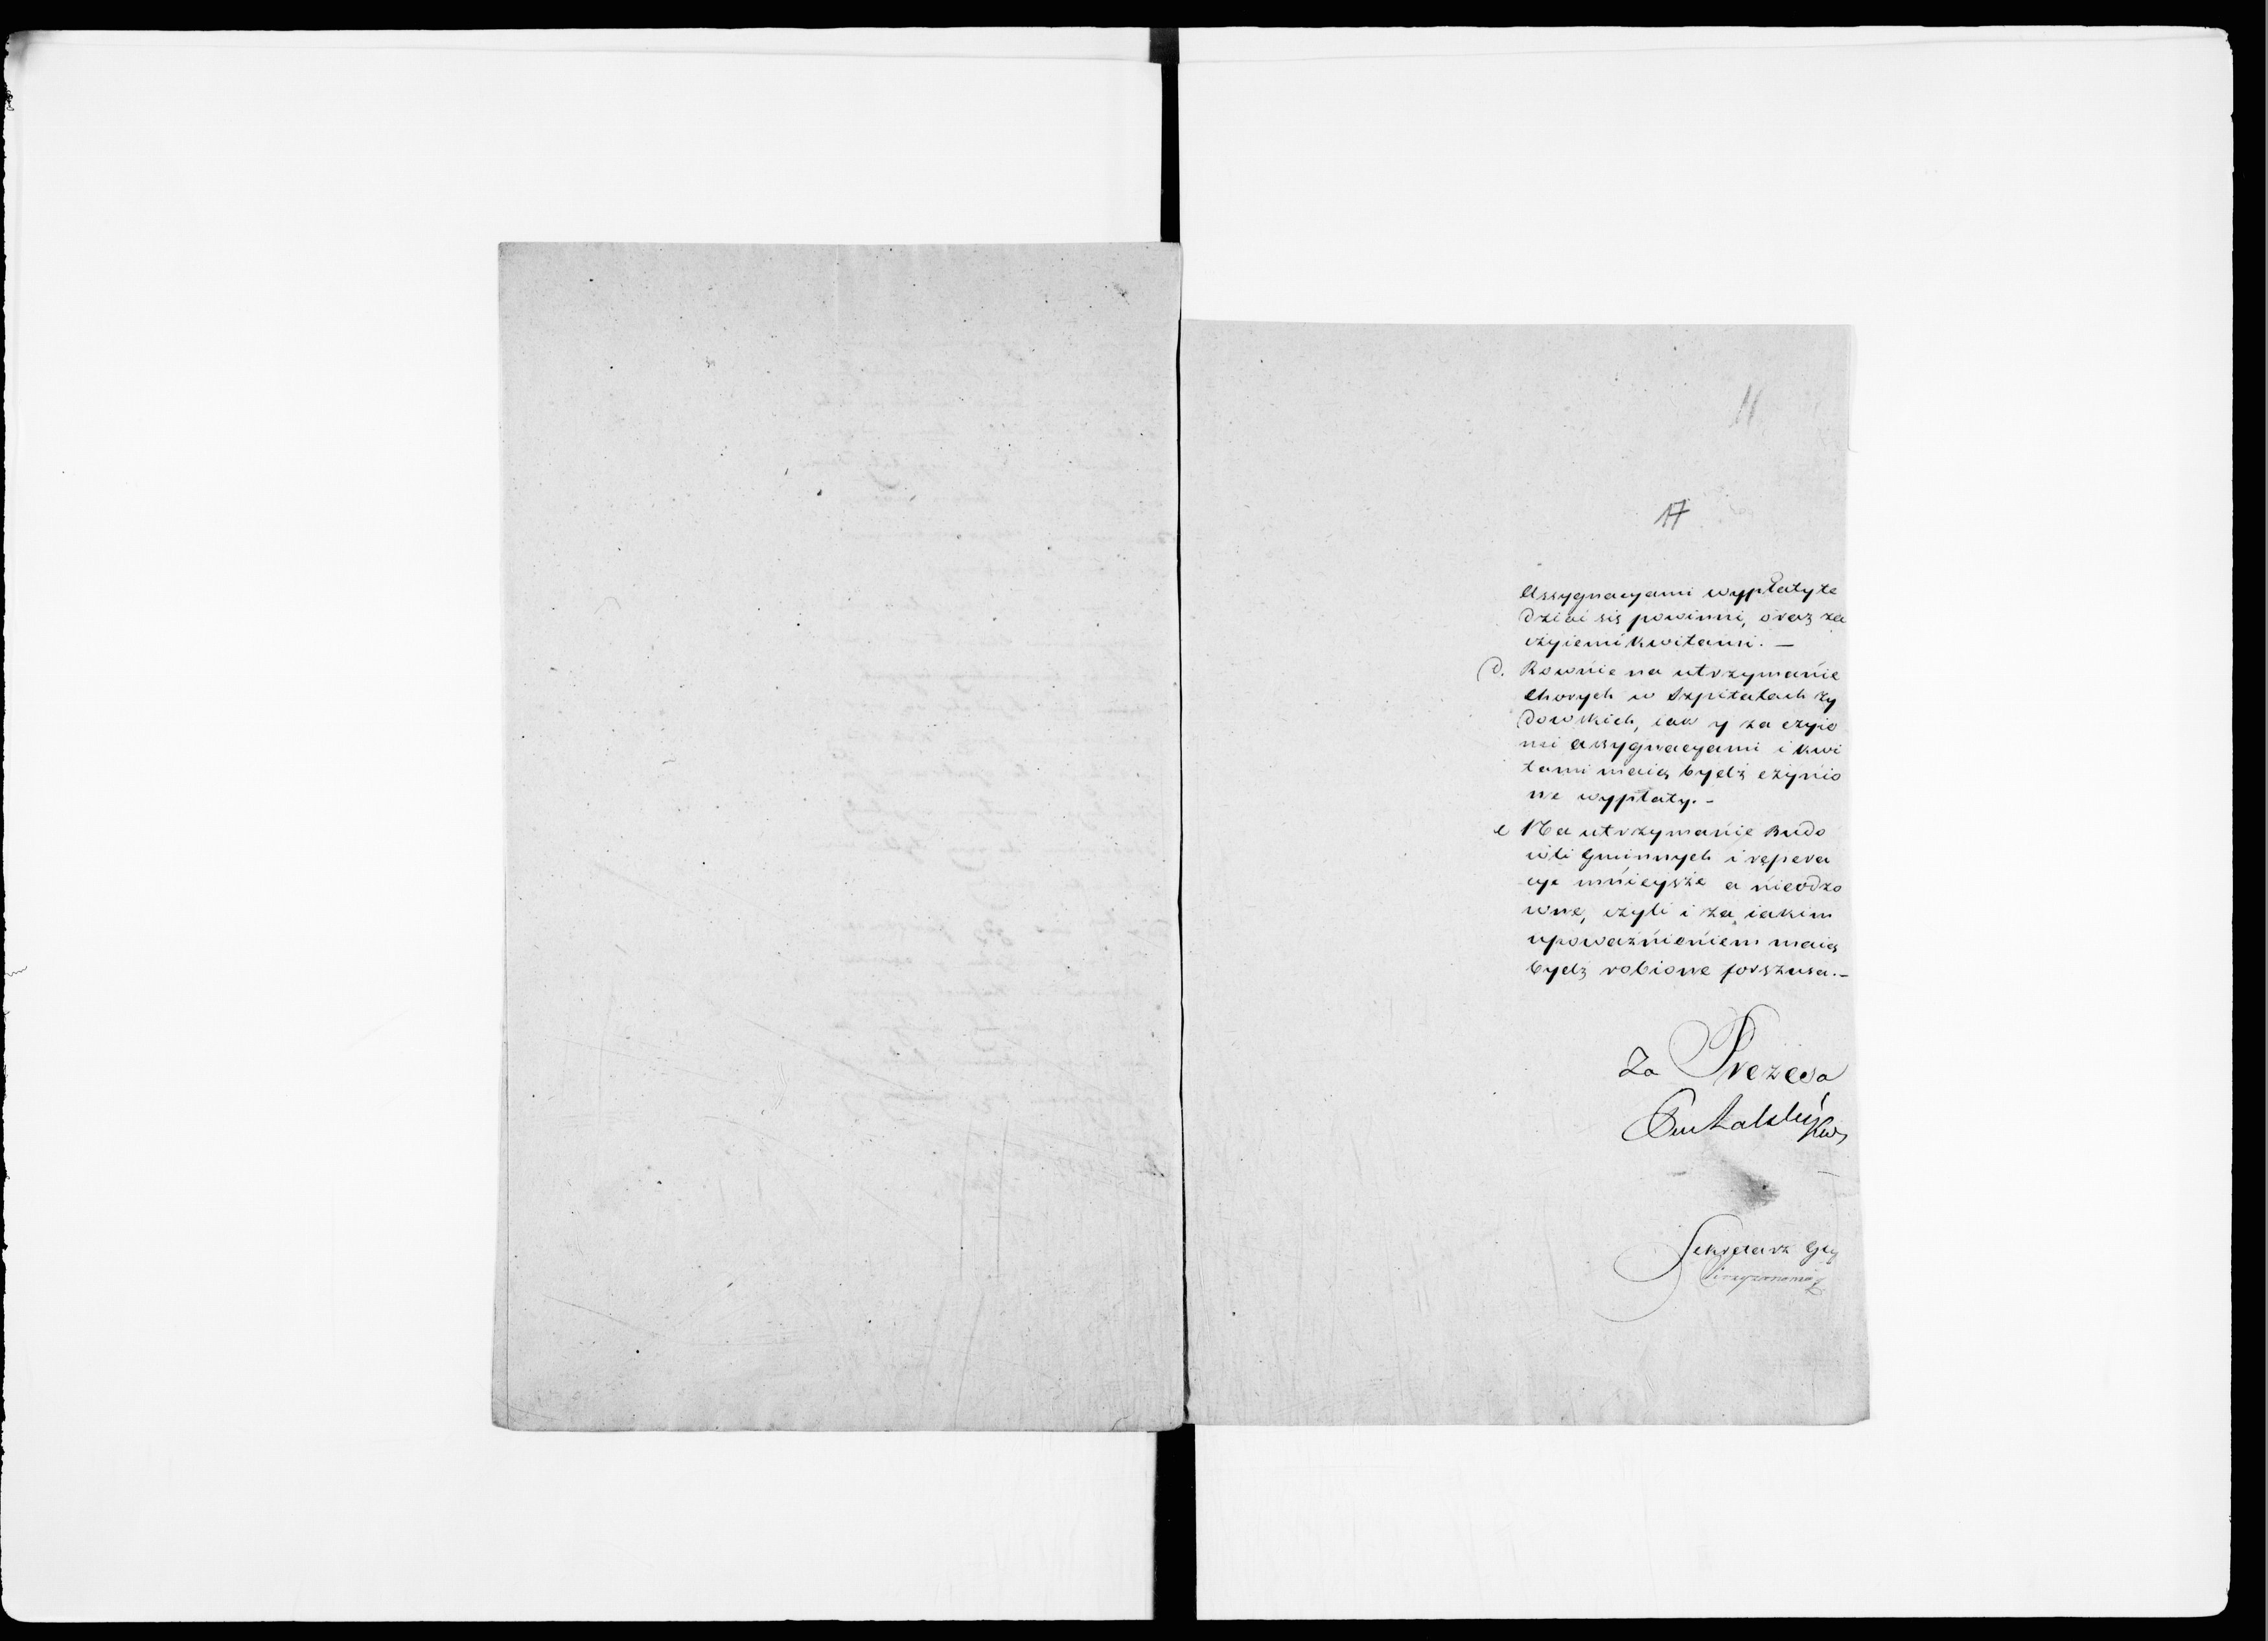 11
17
Assygnacyami wypłaty te
dziać się powinni, oraz za
czyiemi kwitami. —
d. Rownie na utrzymanie
Chorych w Szpitalach Ży
dowskich, iak y za czyie
mi assygnacyami i kwi
tami maią bydź czynio
ne wypłaty. -
e Na utrzymanie Budo
wli Gminnych i repera
cye mnieysze a nieodzo
wne, czyli i za iakim
upoważnieniem maią
bydź robione forszusa. -
Za Prezesa
Sekretarz Gły